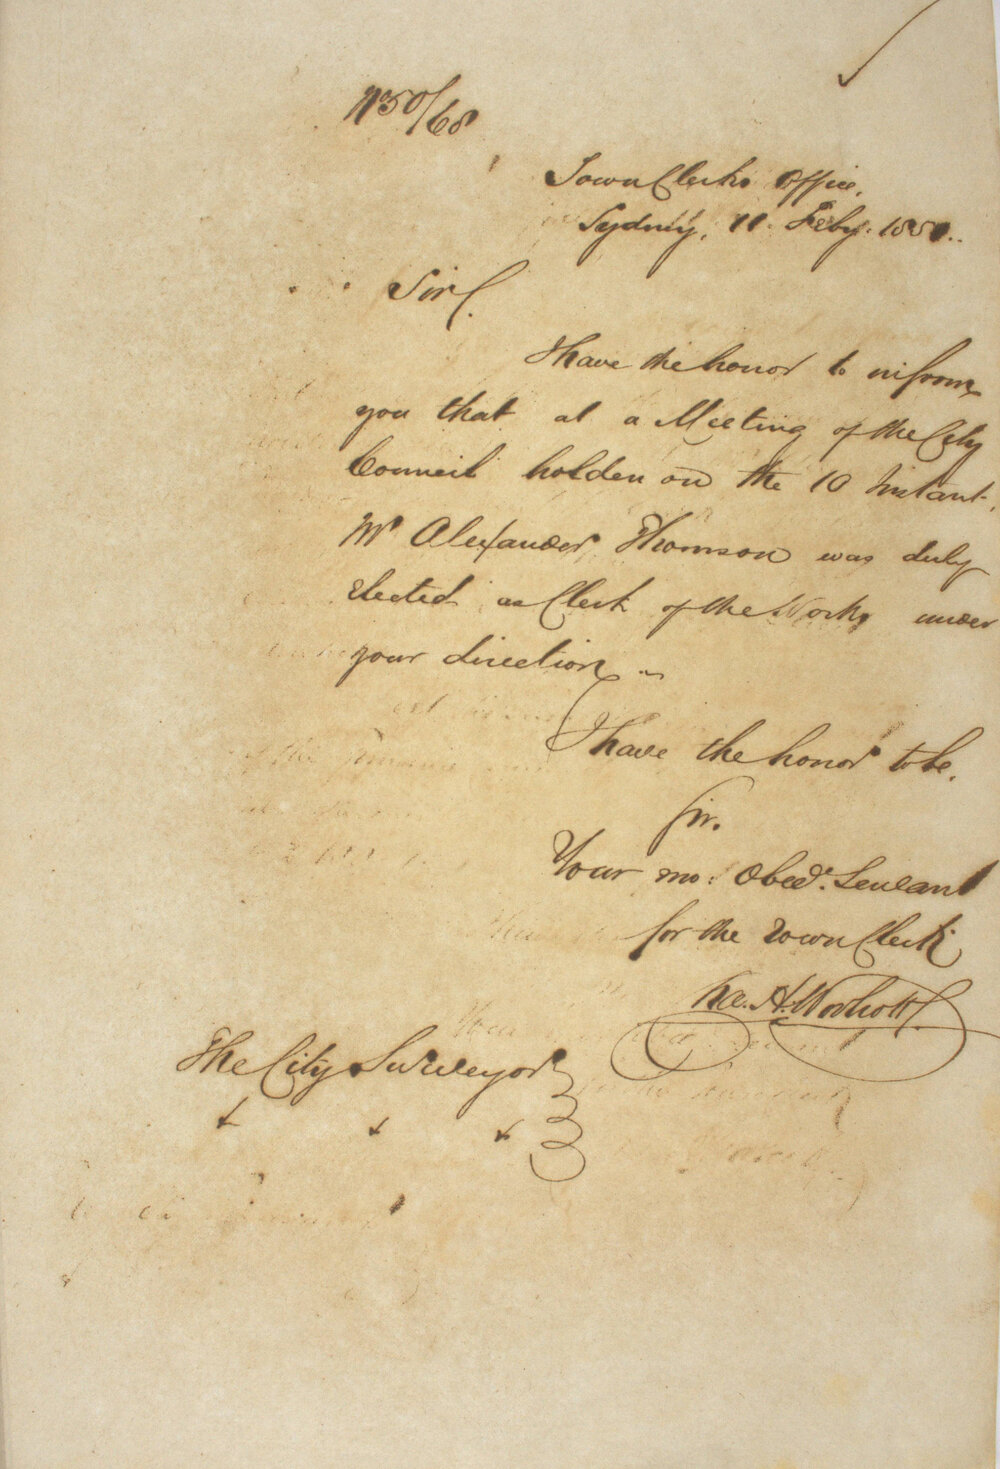 50/68
Town Clerks Office,
Sydney, 11. Feby. 1850.
Sir,
I have the honor to inform
you that at a Meeting of the City
Council holden on the 10 Instant.
Mr Alexander Thomson was duly
elected as Clerk of the Works under
your direction
I have the honor to be,
Sir.
Your mo: Obed. Servant
for the Town Clerk
The City Surveyor